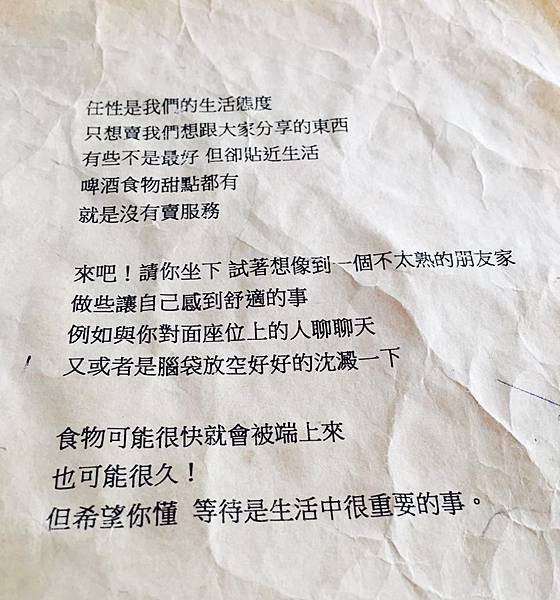 任性是我們的生活態度
只想賣我們想跟大家分享的東西
有些不是最好 但卻貼近生活
啤酒食物甜點都有
就是沒有賣服務
來吧！請你坐下 試著想像到一個不太熟的朋友家
做些讓自己感到舒適的事
例如與你對面座位上的人聊聊天
又或者是腦袋放空好好的沈澱一下
食物可能很快就會被端上來
也可能很久！
但希望你懂 等待是生活中很重要的事。